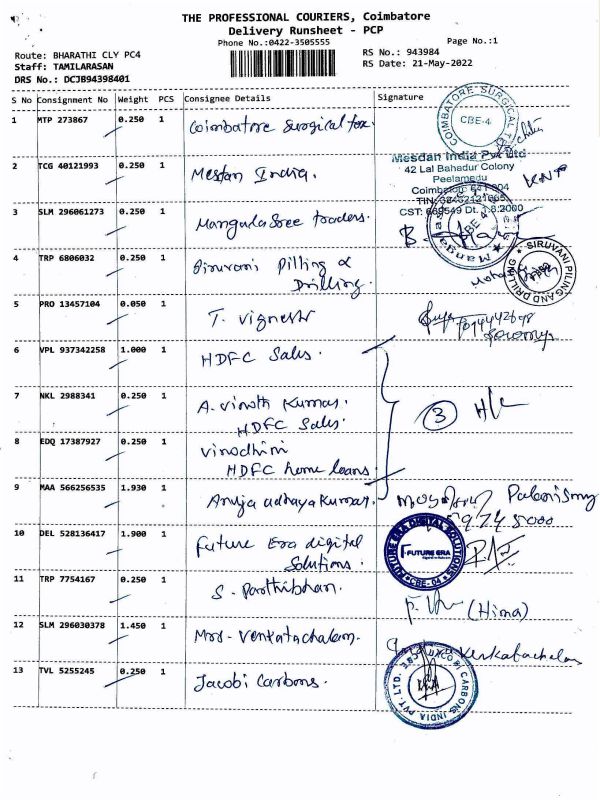 THE PROFESSIONAL COURIERS, Coimbatore
Delivery Runsheet - PCP
Phone No.:0422-3505555
Page No.:1
Route: BHARATHI CLY PC4
RS No.: 943984
Staff: TAMILARASAN
RS Date: 21-May-2022
DRS No.: DCJB94398401
S No Consignment No Weight PCS Consignee Details Signature
1 MTP 273867 0.250 1 Coimbatore Surgical tex.
COIMBATORE SURGICAL
CBE-4
2 TCG 40121993 0.250 1 Mesdan India.
Mesdan India Pvt Ltd
42 Lal Bahadur Colony
Peelamedu
Coimbatore 641 004
3 SLM 296061273 0.250 1 Mangala Sree traders.
CBE 4
4 TRP 6806032 0.250 1 Siruvani Pilling &
Drilling.
SIRUVANI PILING AND DRILLING
5 PRO 13457104 0.050 1 T. Vignesh
6 VPL 937342258 1.000 1 HDFC Sales.
7 NKL 2988341 0.250 1 A. Vinoth Kumar.
HDFC Sales.
3 H/L
8 EDQ 17387927 0.250 1 Vinodhini
HDFC home loans.
9 MAA 566256535 1.930 1 Anuja udhaya Kumar.
10 DEL 528136417 1.900 1 Future Era digital
Solutions.
FUTURE ERA DIGITAL SOLUTIONS
FUTURE ERA
CBE-04
11 TRP 7754167 0.250 1 S. Parthibhan.
(Hima)
12 SLM 296030378 1.450 1 Mrs. Venkatachalam.
Venkatachalam
13 TVL 5255245 0.250 1 Jacobi Carbons.
JACOBI CARBONS INDIA PVT. LTD.